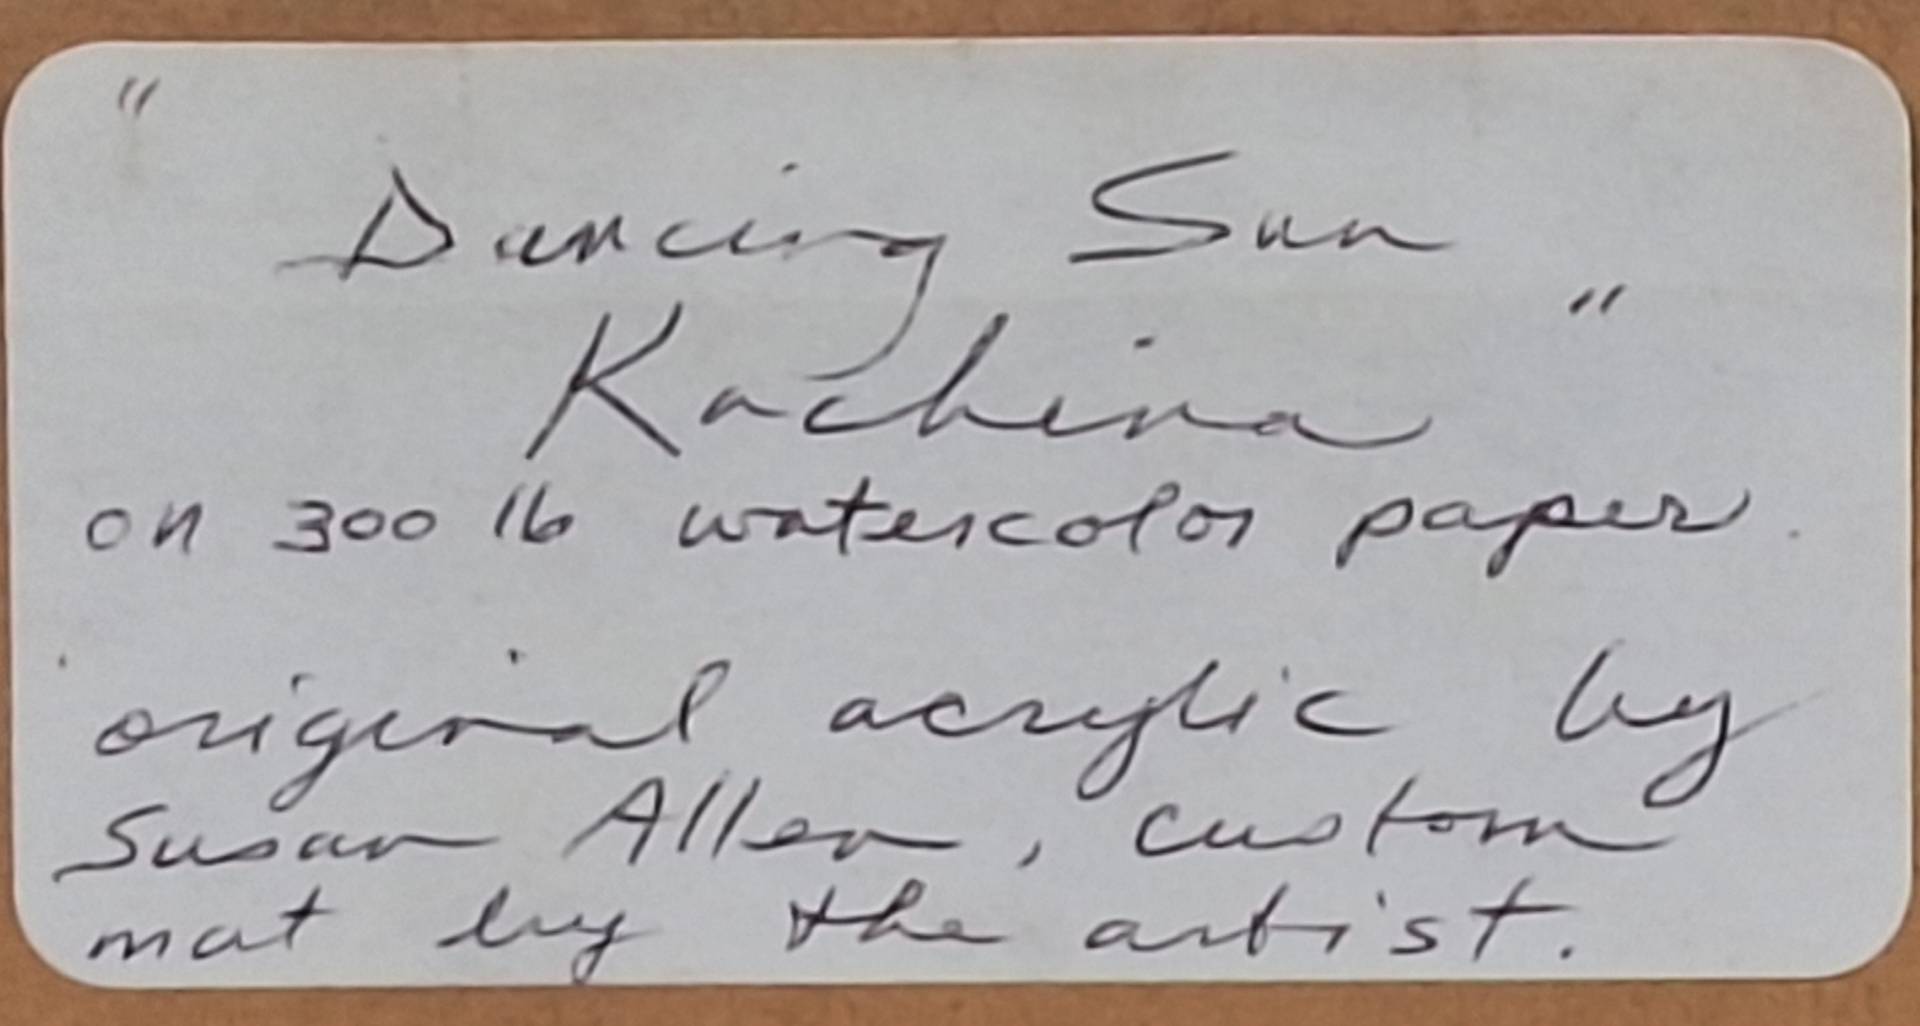 "
Dancing Sun
Kachina "
on 300 lb watercolor paper.
original acrylic by
Susan Allen, custom
mat by the artist.